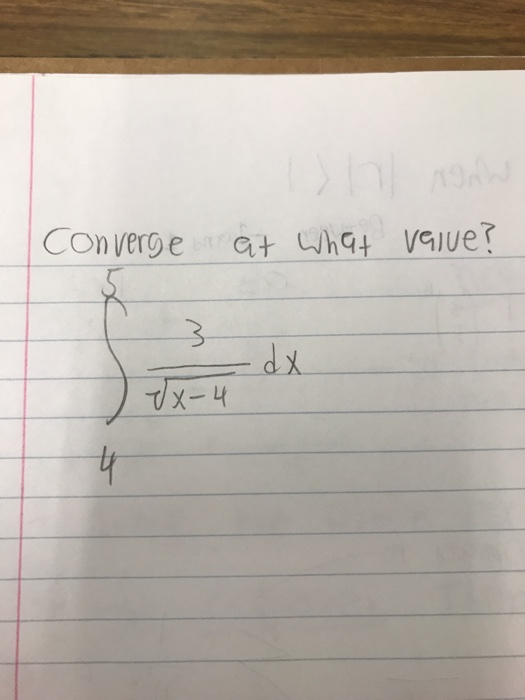 Converge at what value?
5
∫
3
√x-4 dx
4